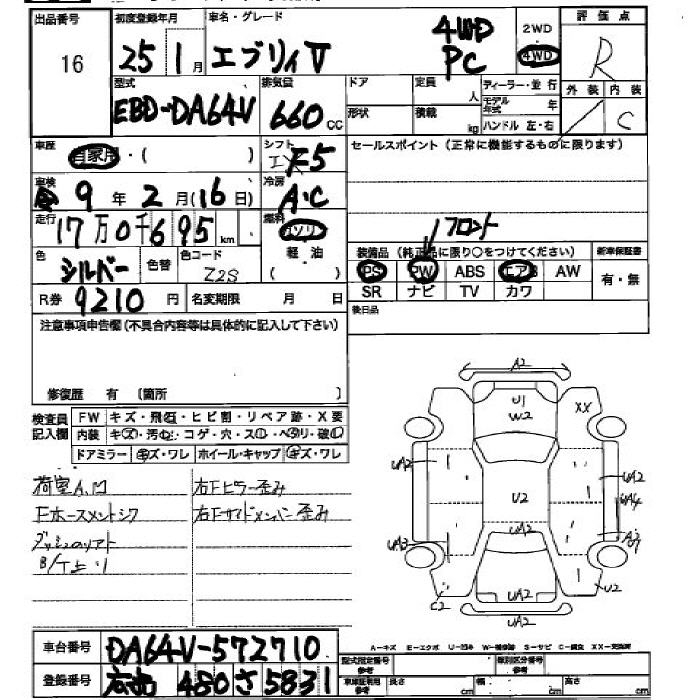 出品番号 初度登録年月 車名・グレード 評価点
16 25 1月 エブリイV 4WD PC 2WD 4WD R
型式 排気量 ドア 定員 人 ディーラー・並行 外装 内装
EBD-DA64V 660cc 形状 積載 kg モデル年式 年 C
ハンドル 左・右
車歴 自家用・( ) シフト F5 セールスポイント(正常に機能するものに限ります)
車検 9年2月(16日) 冷房 A・C
走行 17万0千695km 燃料 ガソリン フロント
色 シルバー 色替 色コード Z2S 軽・油 ( ) 装備品(純正品に限り○をつけてください) 新車保証書
PS PW ABS エアB AW 有・無
R券 9210円 名変期限 月 日 SR ナビ TV カワ
後日品
注意事項申告欄(不具合内容等は具体的に記入して下さい)
修復歴 有 〔箇所 〕
検査員記入欄 FW キズ・飛石・ヒビ割・リペア跡・X要
内装 キズ・汚れ・コゲ・穴・スレ・ヘタリ・破れ
ドアミラー キズ・ワレ ホイール・キャップ キズ・ワレ
荷室A,U 右Fピラー歪み
右Fサイドメンバー歪み
A2
U1
W2
XX
UA2 UA2
U2 UA4
UA2
UA3
C2 UA2 U2
UA2
A-キズ E-エクボ U-凹み W-補修跡 S-サビ C-腐食 XX-交換済
車台番号 DA64V-572710
型式指定番号参考 類別区分番号参考
登録番号 480さ5831
車体証明用参考 長さ cm 幅 cm 高さ cm